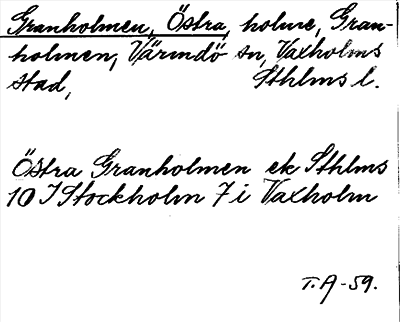 Granholmen, Östra, holme, Gran-
holmen, Värmdö sn, Vaxholms
stad, Sthlms l.
Östra Granholmen ek Sthlms
10 I Stockholm 7 i Vaxholm
T.A-59.